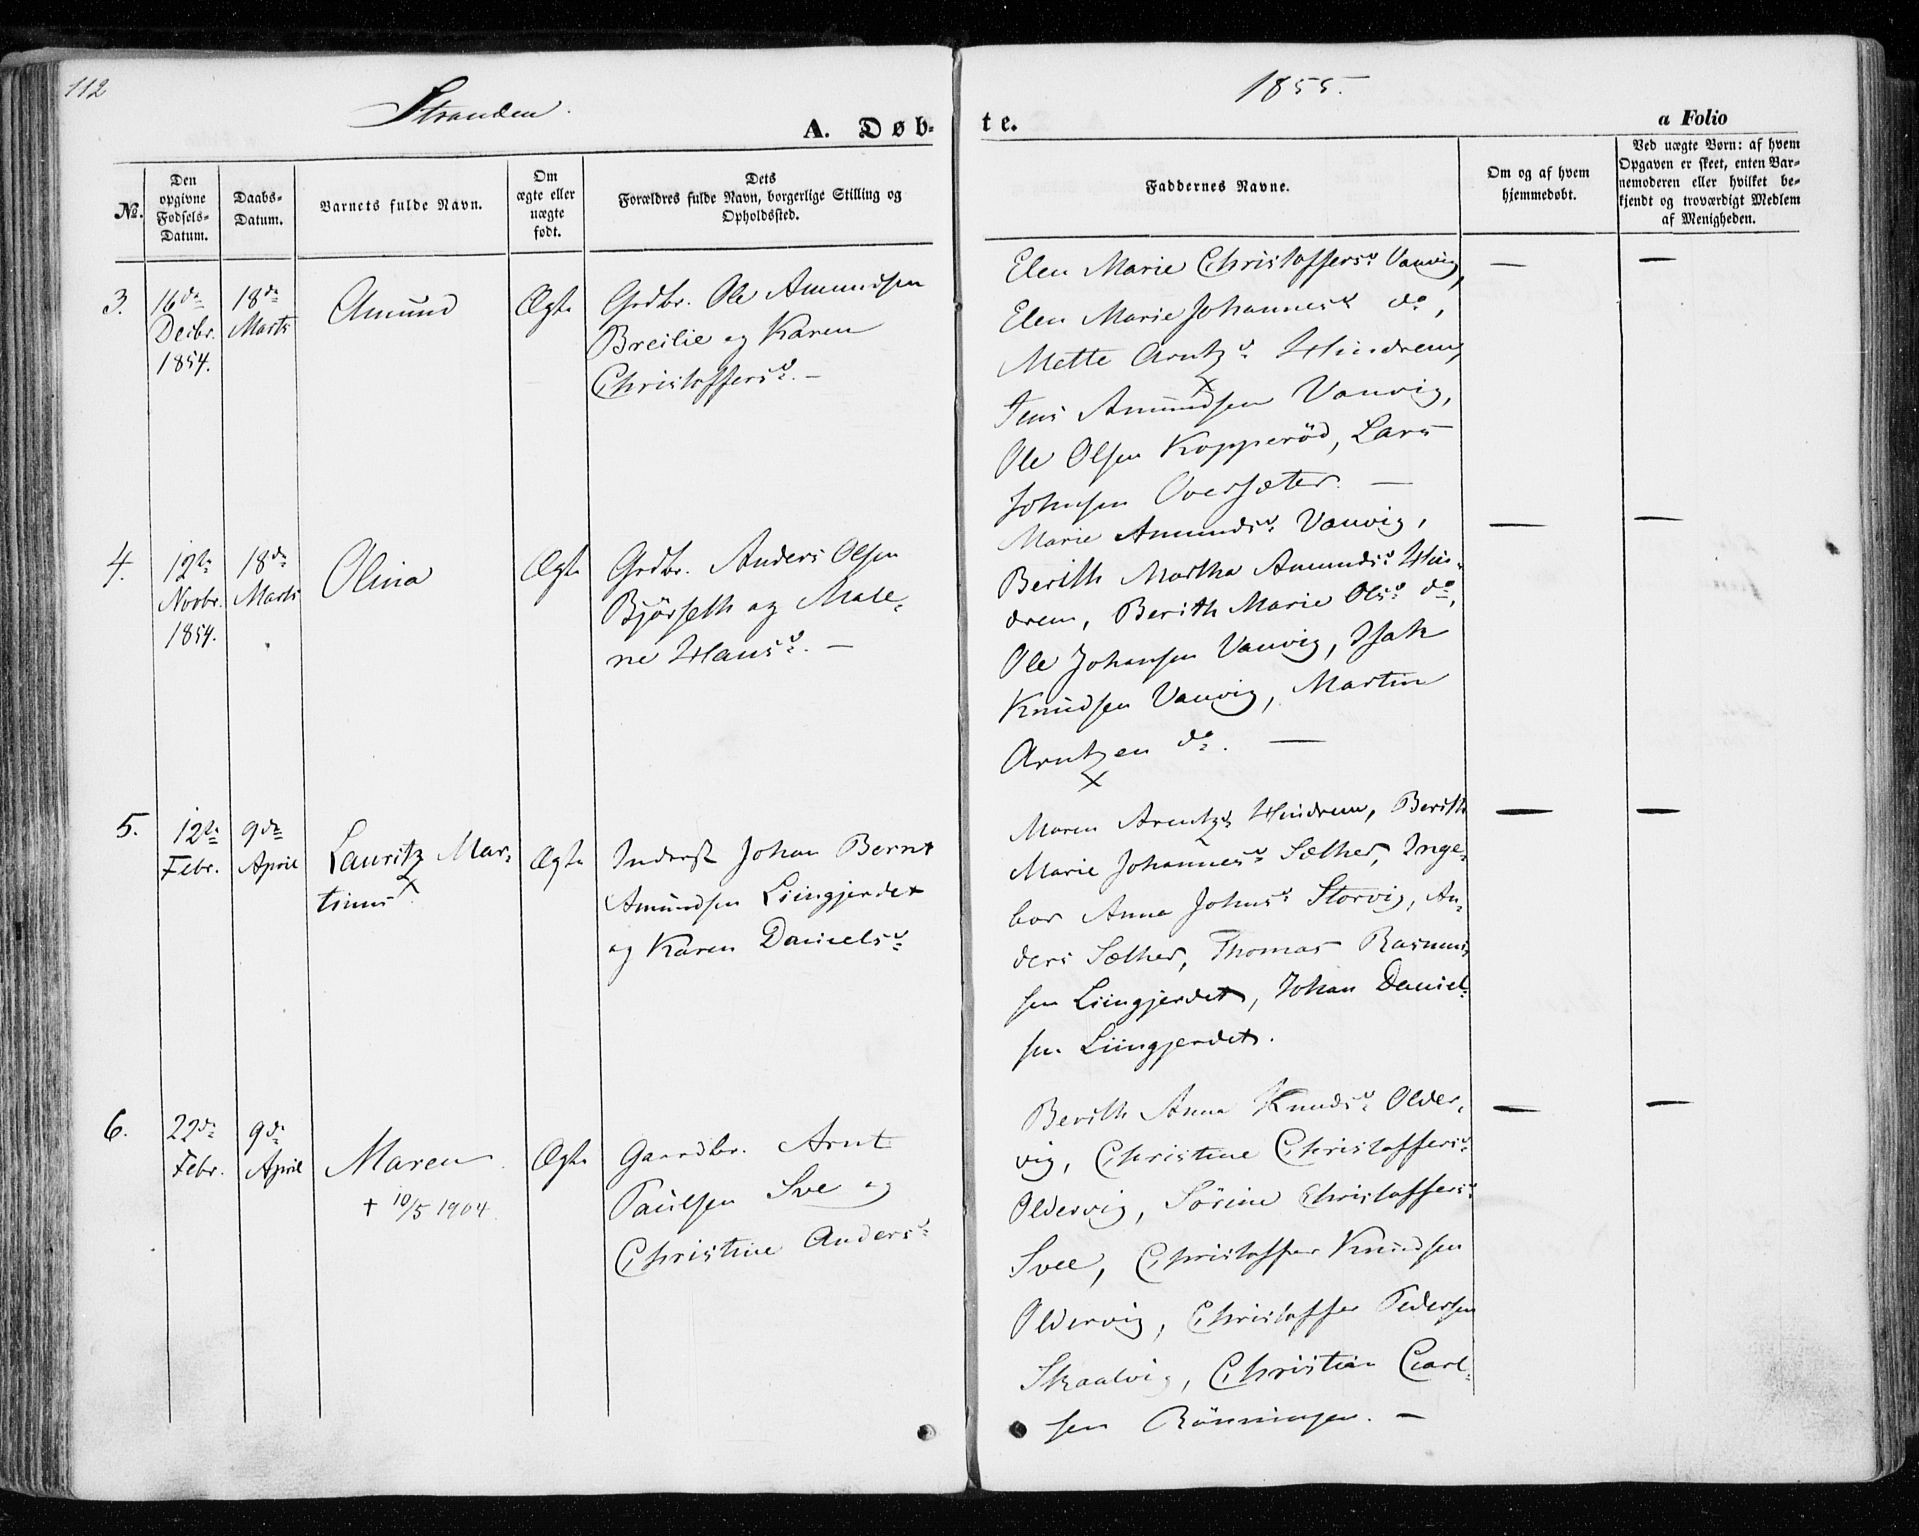 112
Stranden.
1855.
A. Døb-
te.
a Folio
No.
Den opgivne Fødsels-Datum.
Daabs-Datum.
Barnets fulde Navn.
Om ægte eller uægte født.
Dets
Forældres fulde Navn, borgerlige Stilling og
Opholdssted.
Faddernes Navne.
Om og af hvem
hjemmedøbt.
Ved uægte Børn: af hvem
Opgaven er skeet, enten Bar-
nemoderen eller hvilket be-
kjendt og troværdigt Medlem
af Menigheden.
3.
16de
Decbr.
1854.
18de
Marts
Amund
Ægte
Grdbr. Ole Amundsen
Breilie og Karen
Christoffersd. —
Elen Marie Christoffersd. Vanvig,
Elen Marie Johannesd. do,
Mette Arntzd. Hindrem,
Jens Amundsen Vanvig,
Ole Olsen Kopperöd, Lars
Johnsen Oversæter. —
—
—
4.
12te
Novbr.
1854.
18de
Marts
Olina
Ægte
Grdbr. Anders Olsen
Björseth og Male-
ne Hansd. —
Marie Amundsd. Vanvig,
Berith Martha Amundsd. Hin-
drem, Berith Marie Olsd. do,
Ole Johansen Vanvig, Isak
Knudsen Vanvig, Martin
Arntzen do. —
—
—
5.
12te
Febr.
9de
April
Lauritz Mar-
tinus
Ægte
Inderst Johan Bernt
Amundsen Liingjerdet
og Karen Danielsd.
Maren Arentzd. Hindrem, Berith
Marie Johannesd. Sæther, Inge-
bor Anna Johnsd. Storvig, An-
ders Sæther, Thomas Rasmus-
sen Liingjerdet, Johan Daniel-
sen Liingjerdet.
—
—
6.
22de
Febr.
9de
April
Maren
† 10/5 1904.
Ægte
Gaardbr. Arnt
Paulsen Sve og
Christine Andersd.
Berith Anna Knudsd. Older-
vig, Christine Christoffersd.
Oldervig, Sörine Christoffersd.
Svee, Christoffer Knudsen
Oldervig, Christoffer Pedersen
Skaalvig, Christian Carl-
sen Rönningen. —
—
—